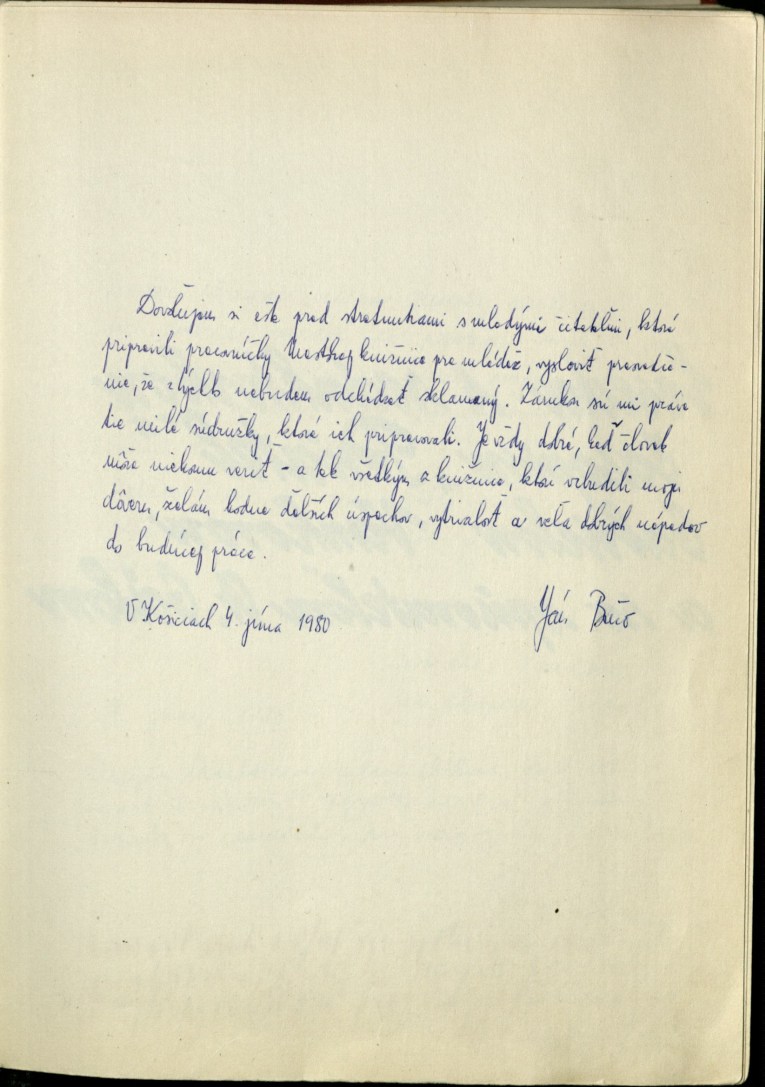 Dovoľujem si ešte pred stretnutiami s mladými čitateľmi, ktoré
pripravili pracovníčky Mestskej knižnice pre mládež, vysloviť presvedče-
nie, že z tých nebudem odchádzať sklamaný. Zárukou sú mi práve
tie milé súdružky, ktoré ich pripravovali. Je vždy dobré, keď človek
môže niekomu veriť – a tak všetkým z knižnice, ktorí vzbudili moju
dôveru, želám kodne ďalších úspechov, vytrvalosť a veľa dobrých nápadov
do budúcej práce.
V Košiciach 4. júna 1980
Ján